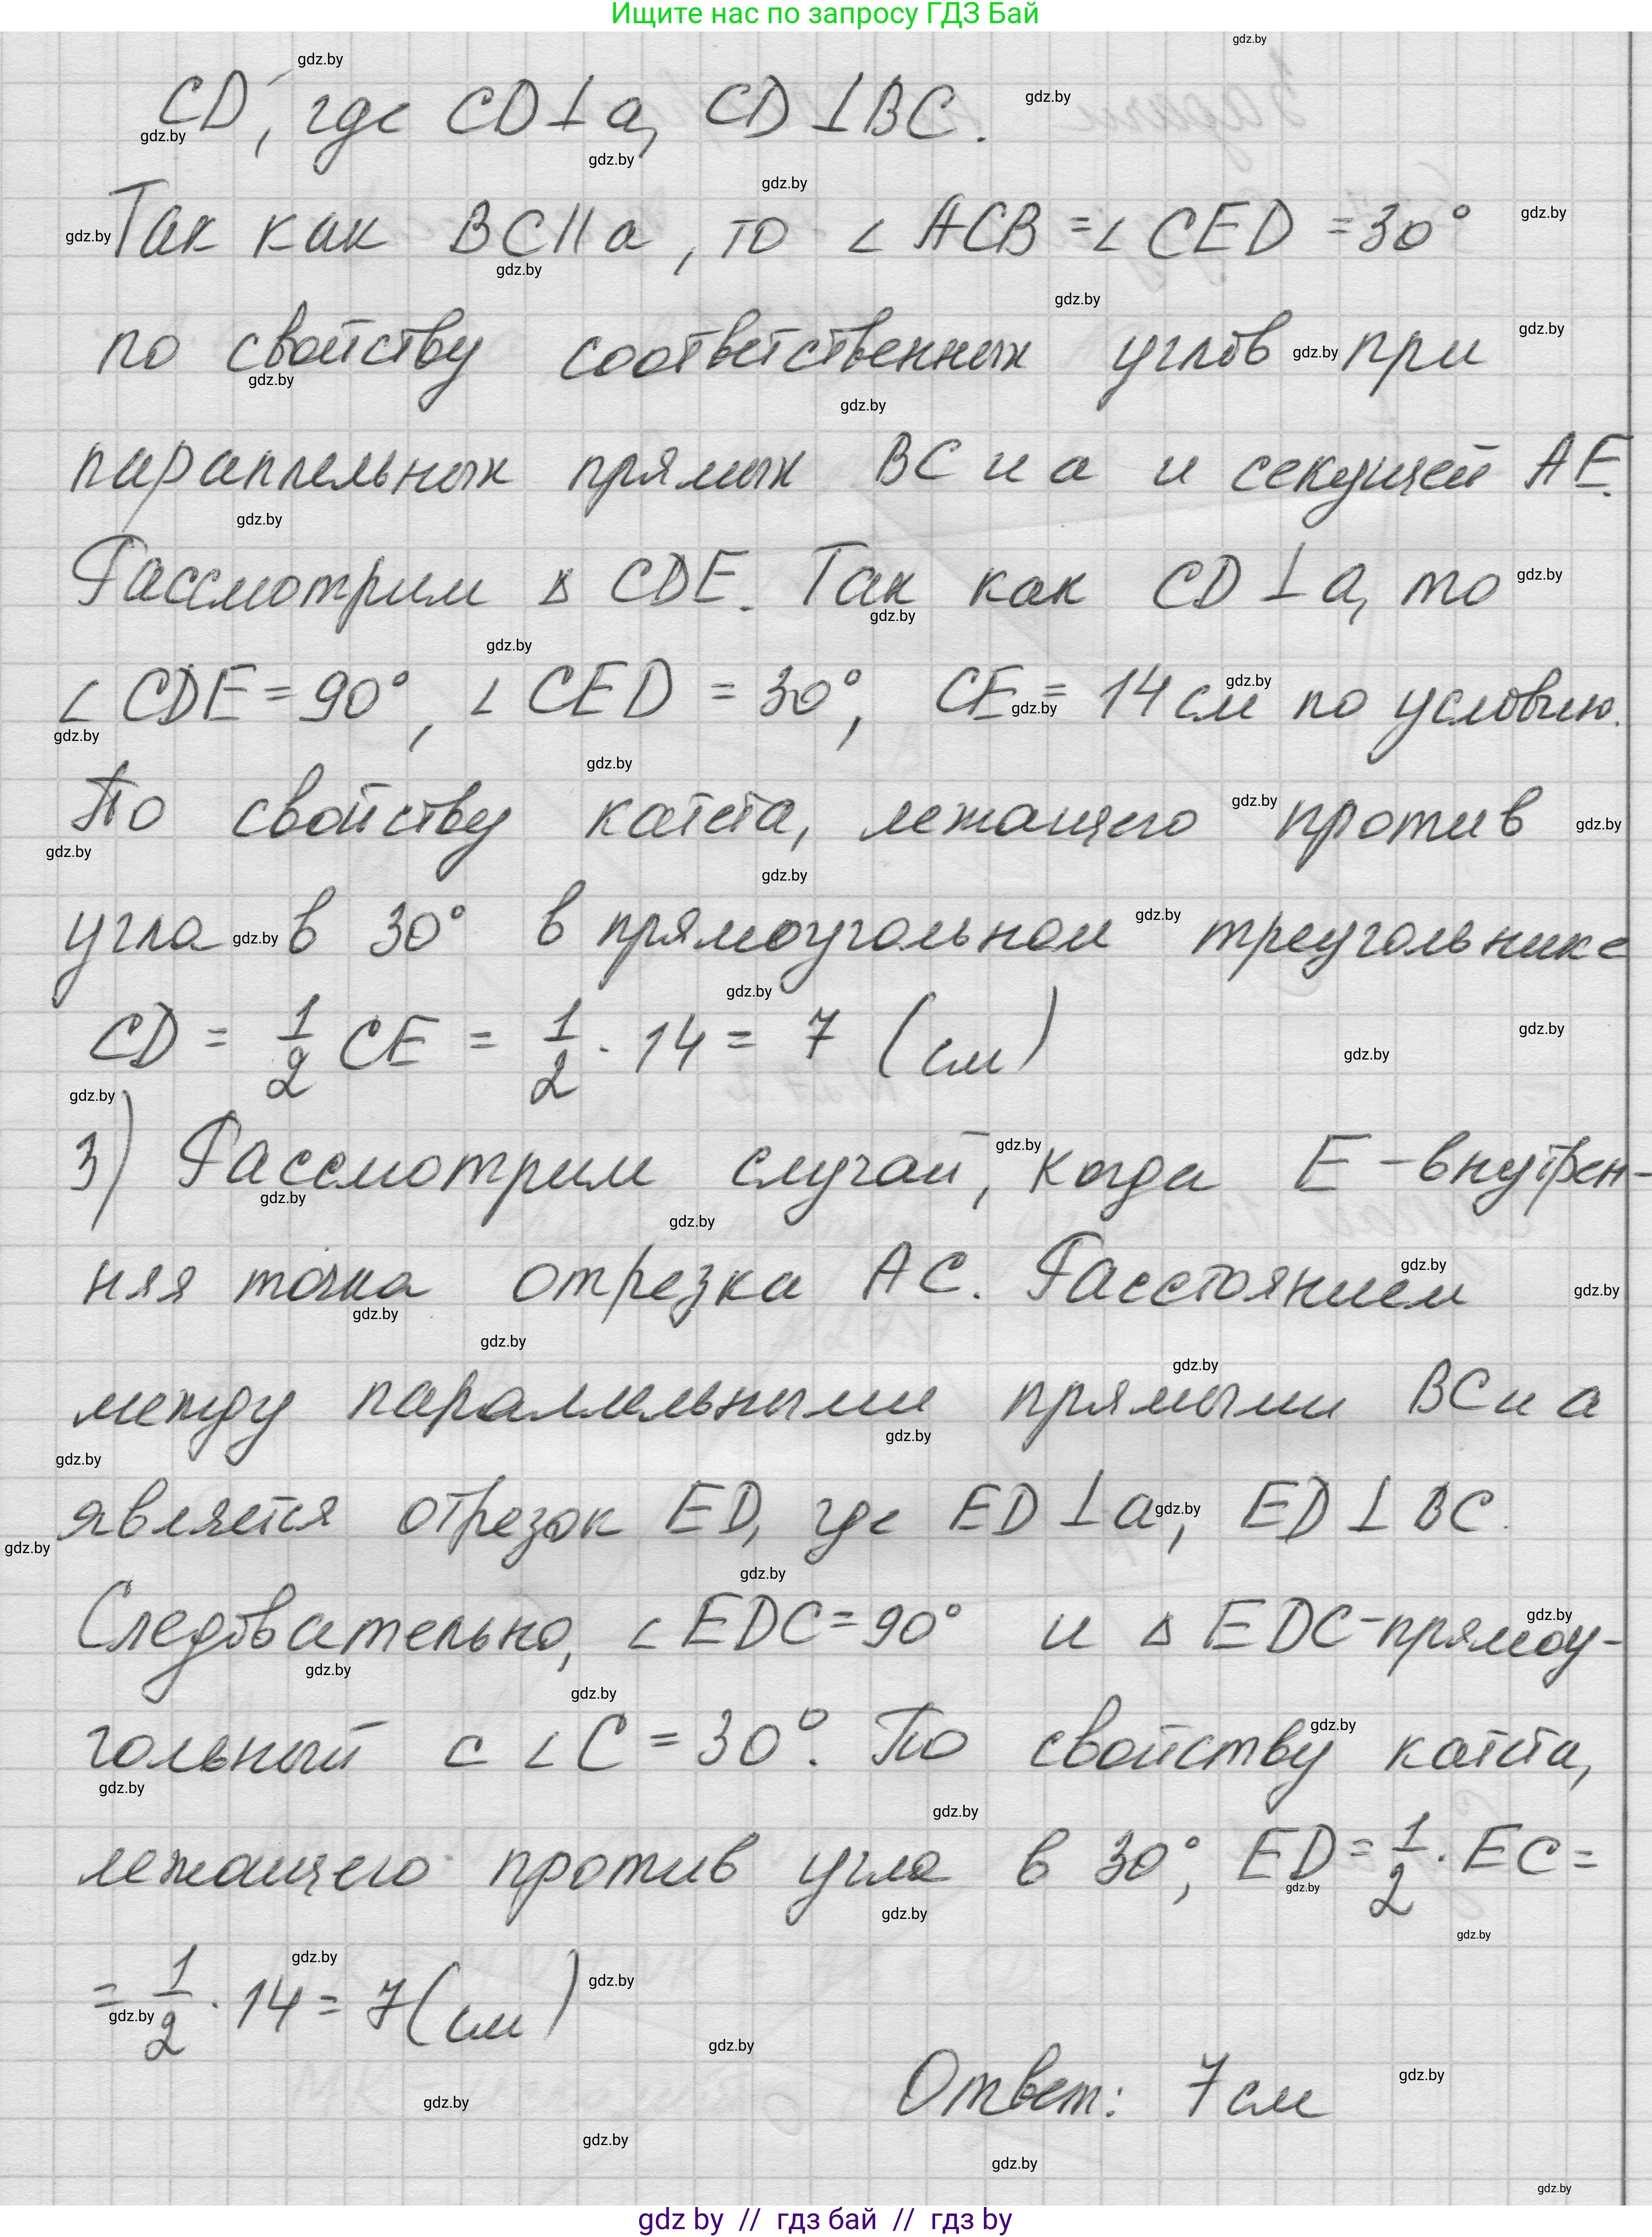 Ищите нас по запросу ГДЗ Бай
CD, где CD⊥a, CD⊥BC.
Так как BC∥a, то ∠ACB=∠CED=30°
по свойству соответственных углов при
параллельных прямых BC и a и секущей AE.
Рассмотрим Δ CDE. Так как CD⊥a, то
∠CDE=90°, ∠CED=30°, CE=14 см по условию.
По свойству катета, лежащего против
угла в 30° в прямоугольном треугольнике
CD = 1/2 CE = 1/2 · 14 = 7 (см)
3) Рассмотрим случай, когда E - внутрен-
няя точка отрезка AC. Расстоянием
между параллельными прямыми BC и a
является отрезок ED, где ED⊥a, ED⊥BC.
Следовательно, ∠EDC=90° и Δ EDC - прямоу-
гольный с ∠C=30°. По свойству катета,
лежащего против угла в 30°, ED=1/2 · EC=
=1/2 · 14 = 7 (см)
Ответ: 7 см
gdz by // гдз бай // гдз by